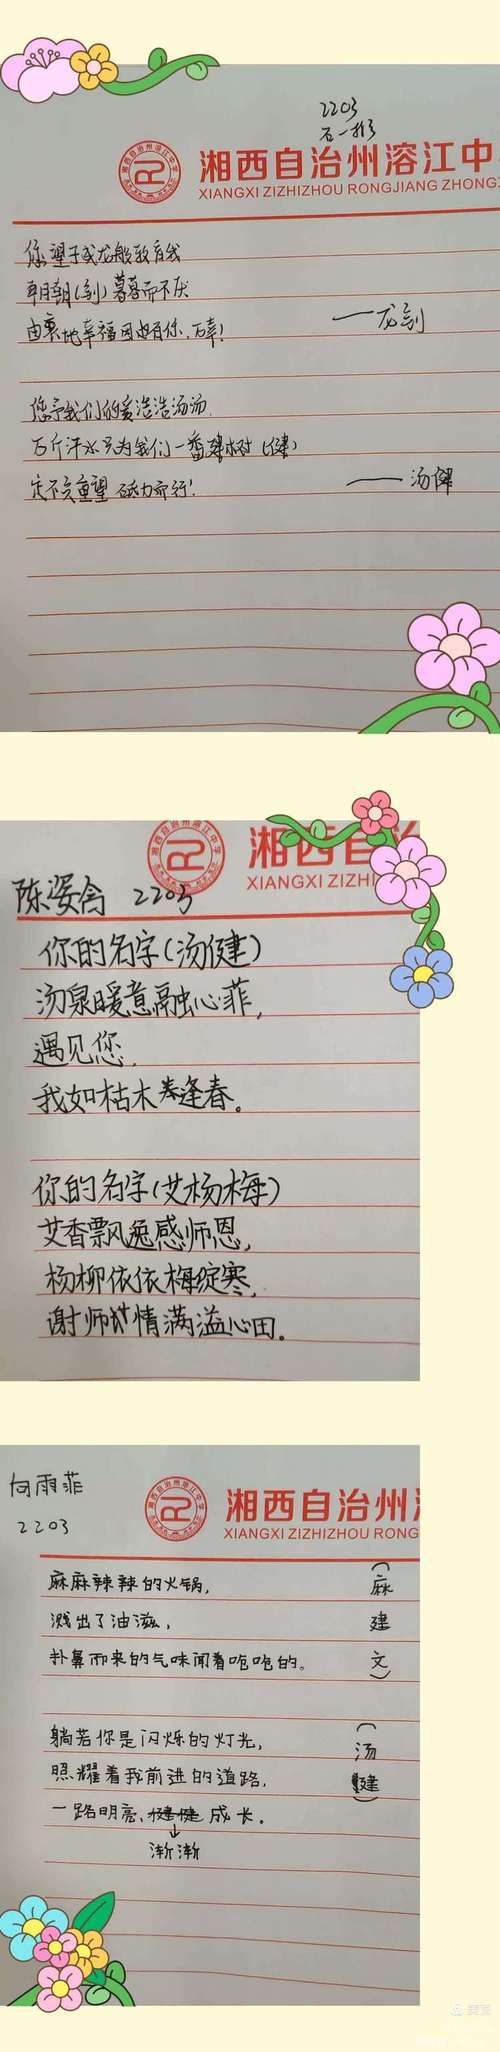 2203
湘西自治州溶江中
XIANGXI ZIZHIZHOU RONGJIANG ZHONG
您望子成龙般教育我
(剑)暮暮而不厌
由衷地幸福因为有你,万幸!
——龙剑
您予我们的爱浩浩汤汤,
万斤汗水只为我们一番建树(健)
定不负重望 砥力而行!
——汤健
湘西自治
XIANGXI ZIZHI
陈姿含 2203
你的名字(汤健)
汤泉暖意融心菲,
遇见您,
我如枯木逢春。
你的名字(艾杨梅)
艾香飘逸感师恩,
杨柳依依梅绽寒,
谢师情满溢心田。
向雨菲
2203
湘西自治州
XIANGXI ZIZHIZHOU RONG
麻麻辣辣的火锅,
溅出了油滋,
扑鼻而来的气味闻着呛呛的。
(麻建文)
躺若你是闪烁的灯光,
照耀着我前进的道路,
一路明亮、健健成长。
渐渐
(汤健)
美篇